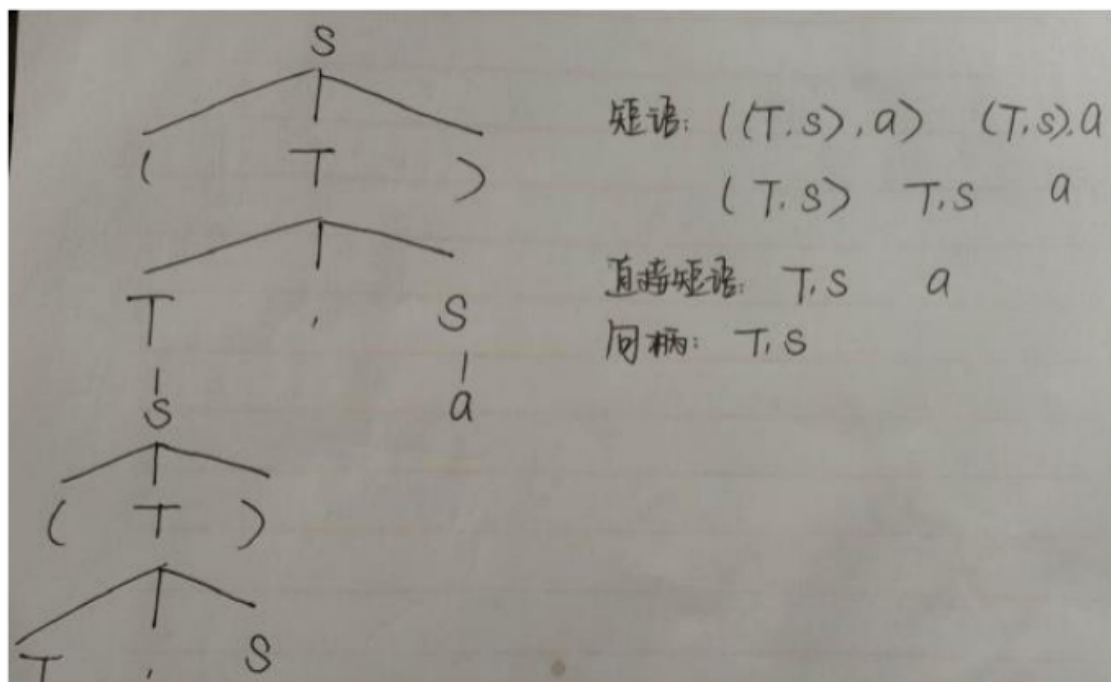 S
( T )
T , S
S a
( T )
T , S
短语: ((T,S),a) (T,S),a
(T,S) T,S a
直接短语: T,S a
句柄: T,S